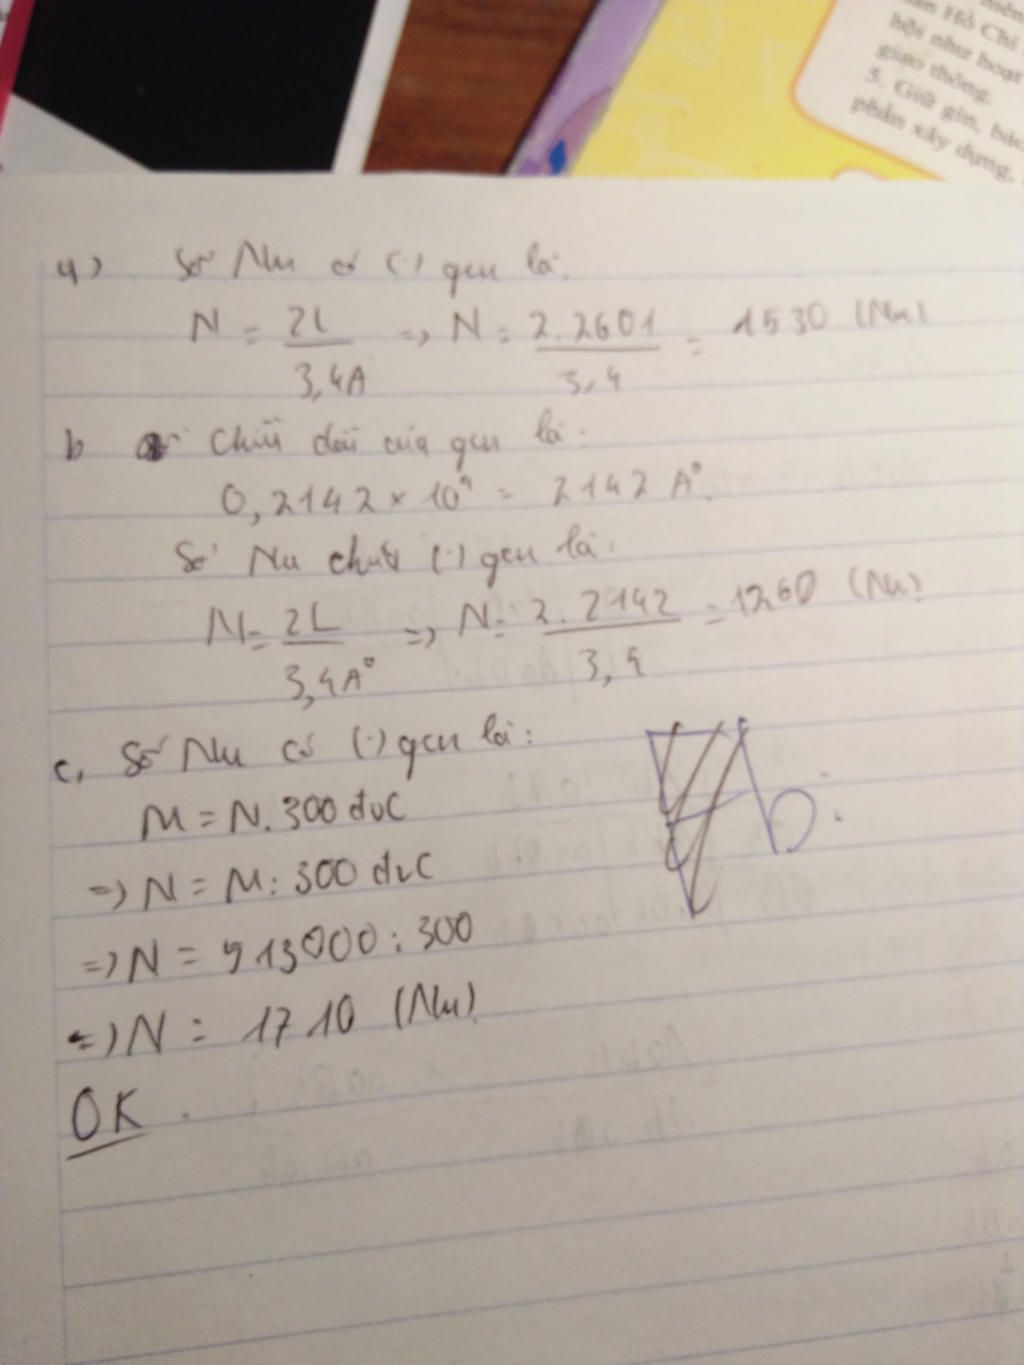 hội như hoạt
giao thông.
5. Giữ gìn, bảo
phẩm xây dựng,
a) Số Nu có (·) gen là:
N = 2L / 3,4A => N = 2.2601 / 3,4 = 1530 (Nu)
b Chiều dài của gen là:
0,2142 × 10⁴ = 2142 A°.
Số Nu chứa (·) gen là:
N = 2L / 3,4A° => N = 2.2142 / 3,4 = 1260 (Nu)
c, Số Nu có (·) gen là:
M = N.300 đvC
=> N = M : 300 đvC
=> N = 513000 : 300
=> N = 1710 (Nu)
OK.